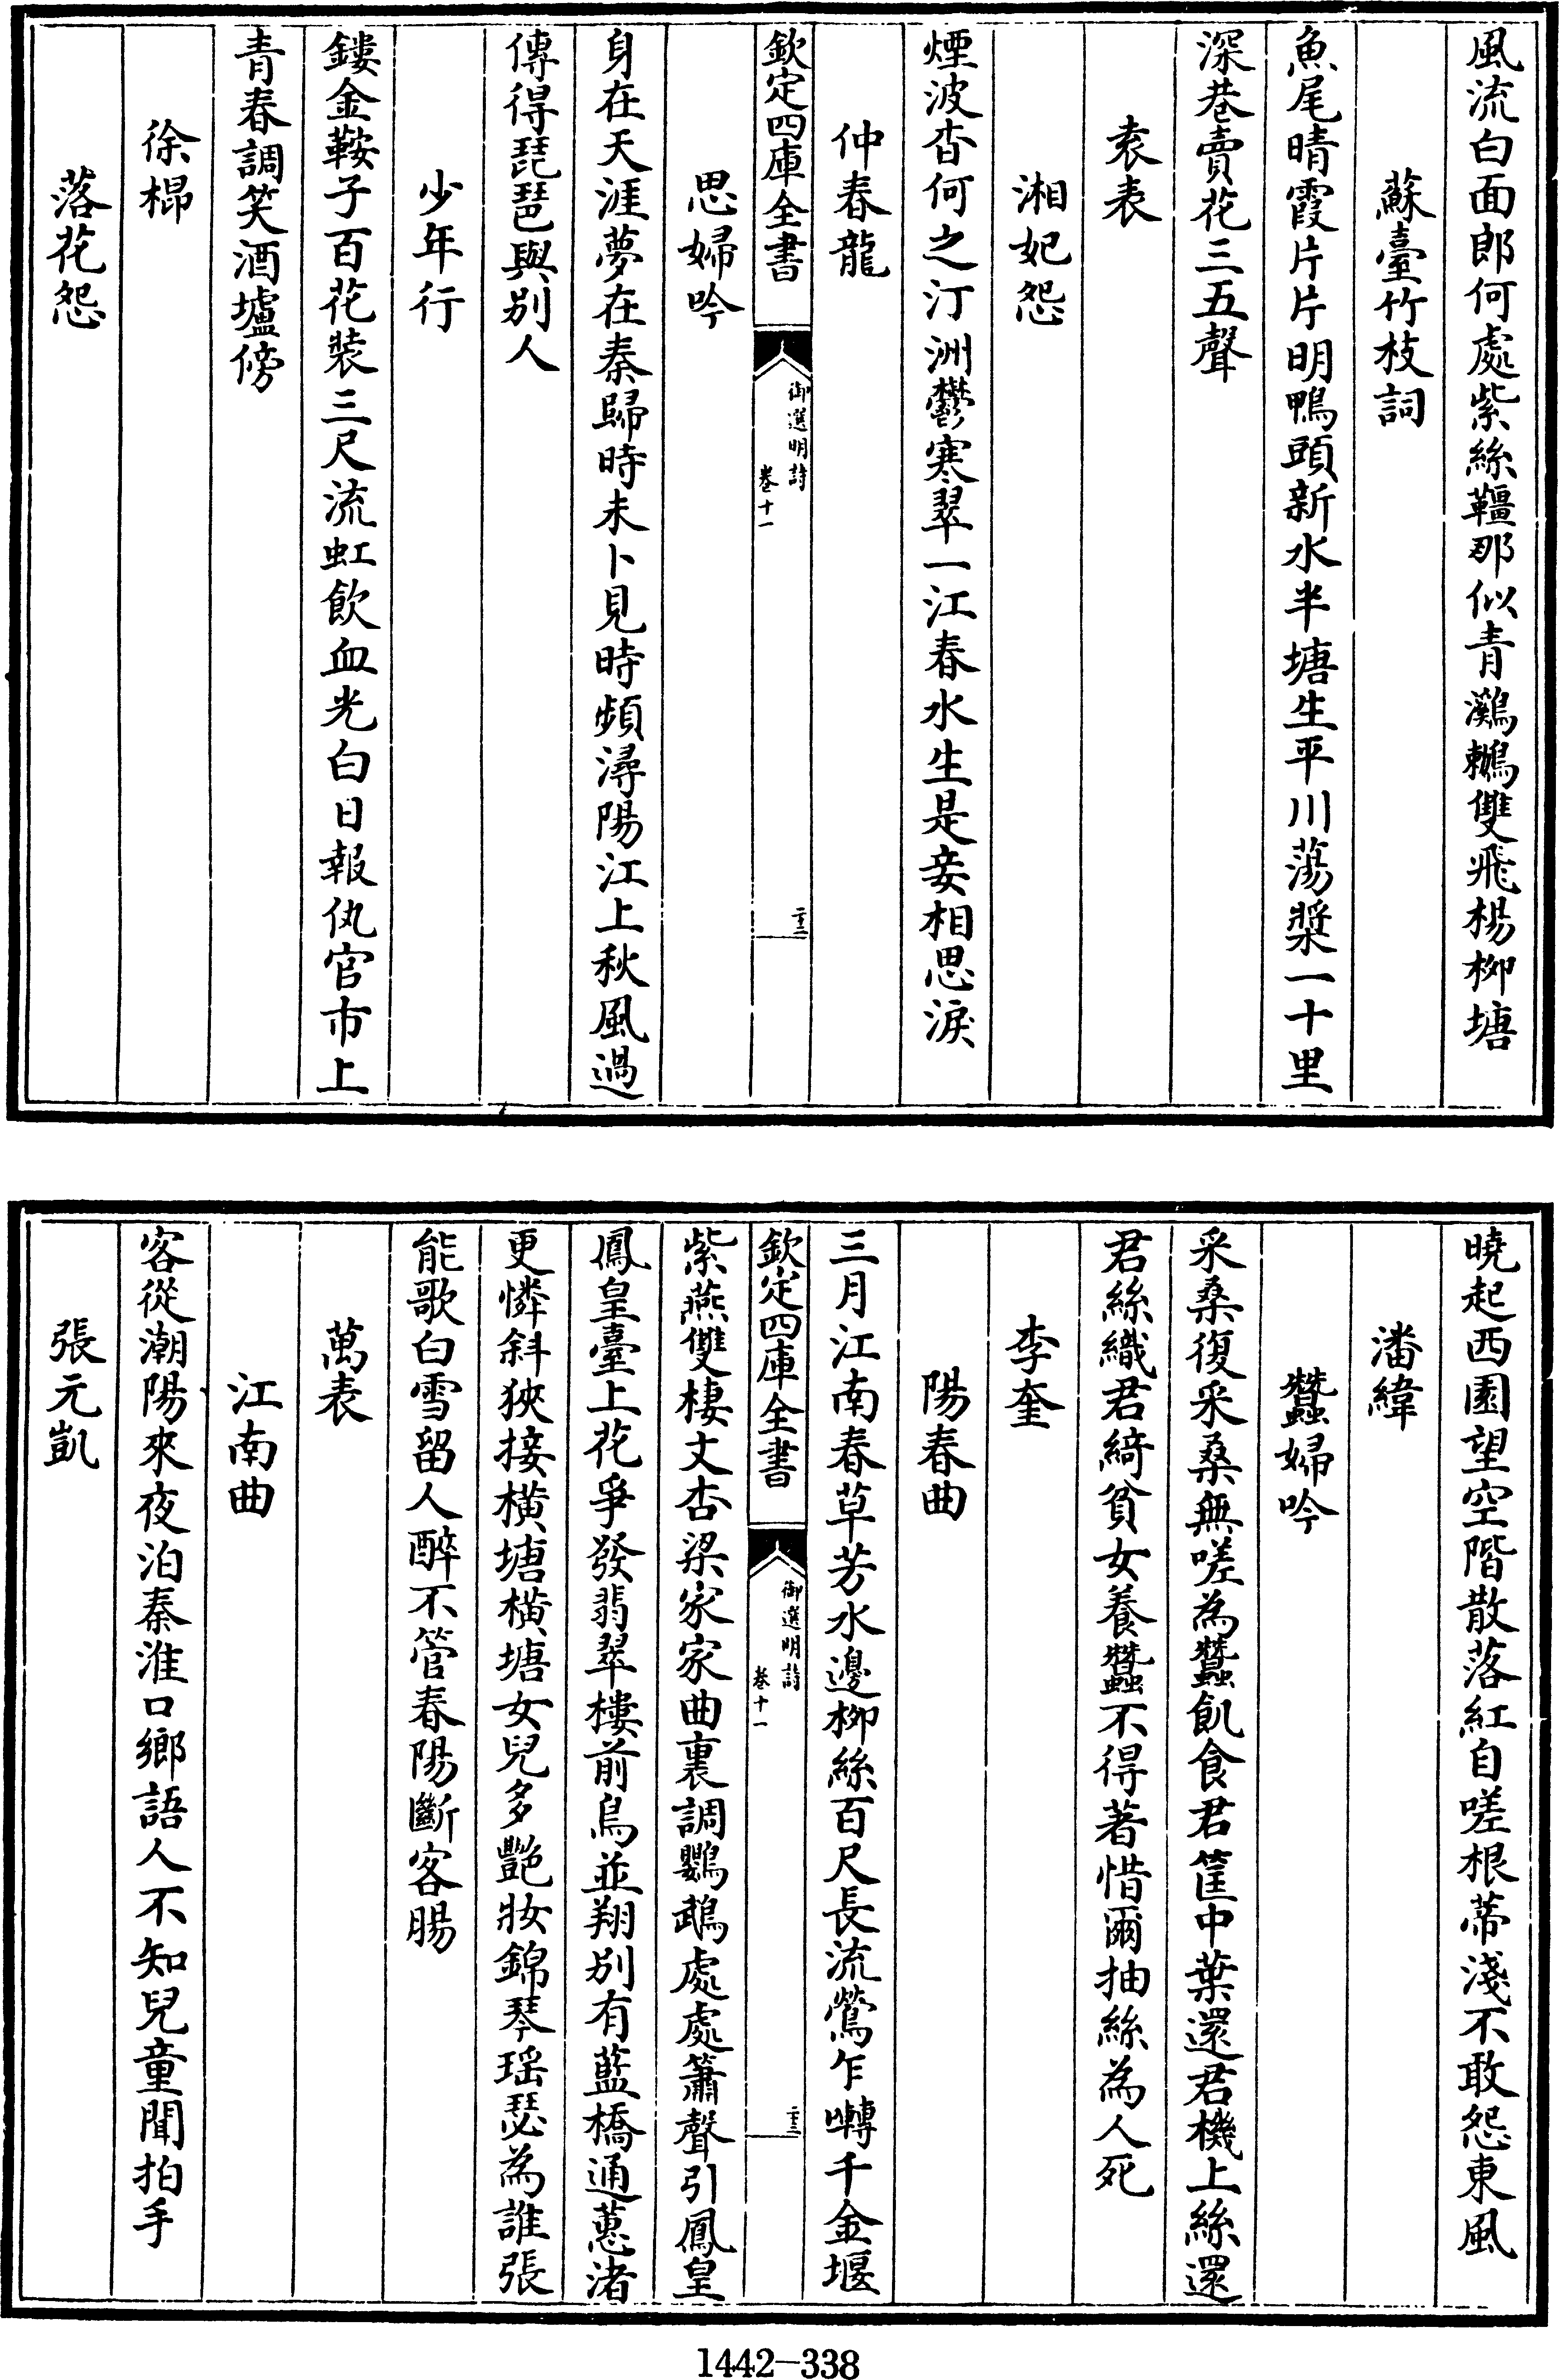 風流白面郎何處紫絲韁那似青鸂鶒雙飛楊柳塘
蘇臺竹枝詞
魚尾晴霞片片明鴨頭新水半塘生平川蕩槳一十里
深巷賣花三五聲
袁表
湘妃怨
煙波杳何之汀洲鬱寒翠一江春水生是妾相思淚
仲春龍
欽定四庫全書
御選明詩
卷十一
二十三
思婦吟
身在天涯夢在秦歸時未卜見時頻潯陽江上秋風過
傳得琵琶與別人
少年行
鏤金鞍子百花裝三尺流虹飲血光白日報仇官市上
青春調笑酒壚傍
徐㮰
落花怨
曉起西園望空階散落紅自嗟根蒂淺不敢怨東風
潘緯
蠶婦吟
采桑復采桑無嗟為蠶飢食君筐中葉還君機上絲還
君絲織君綺貧女養蠶不得著惜爾抽絲為人死
李奎
陽春曲
三月江南春草芳水邊柳絲百尺長流鶯乍囀千金堰
欽定四庫全書
御選明詩
卷十一
二十三
紫燕雙棲文杏梁家家曲裏調鸚鵡處處簫聲引鳳皇
鳳皇臺上花爭發翡翠樓前鳥並翔別有藍橋通蕙渚
更憐斜狹接橫塘橫塘女兒多艷妝錦琴瑶瑟為誰張
能歌白雪留人醉不管春陽斷客腸
萬表
江南曲
客從潮陽來夜泊秦淮口鄉語人不知兒童聞拍手
張元凱
1442-338